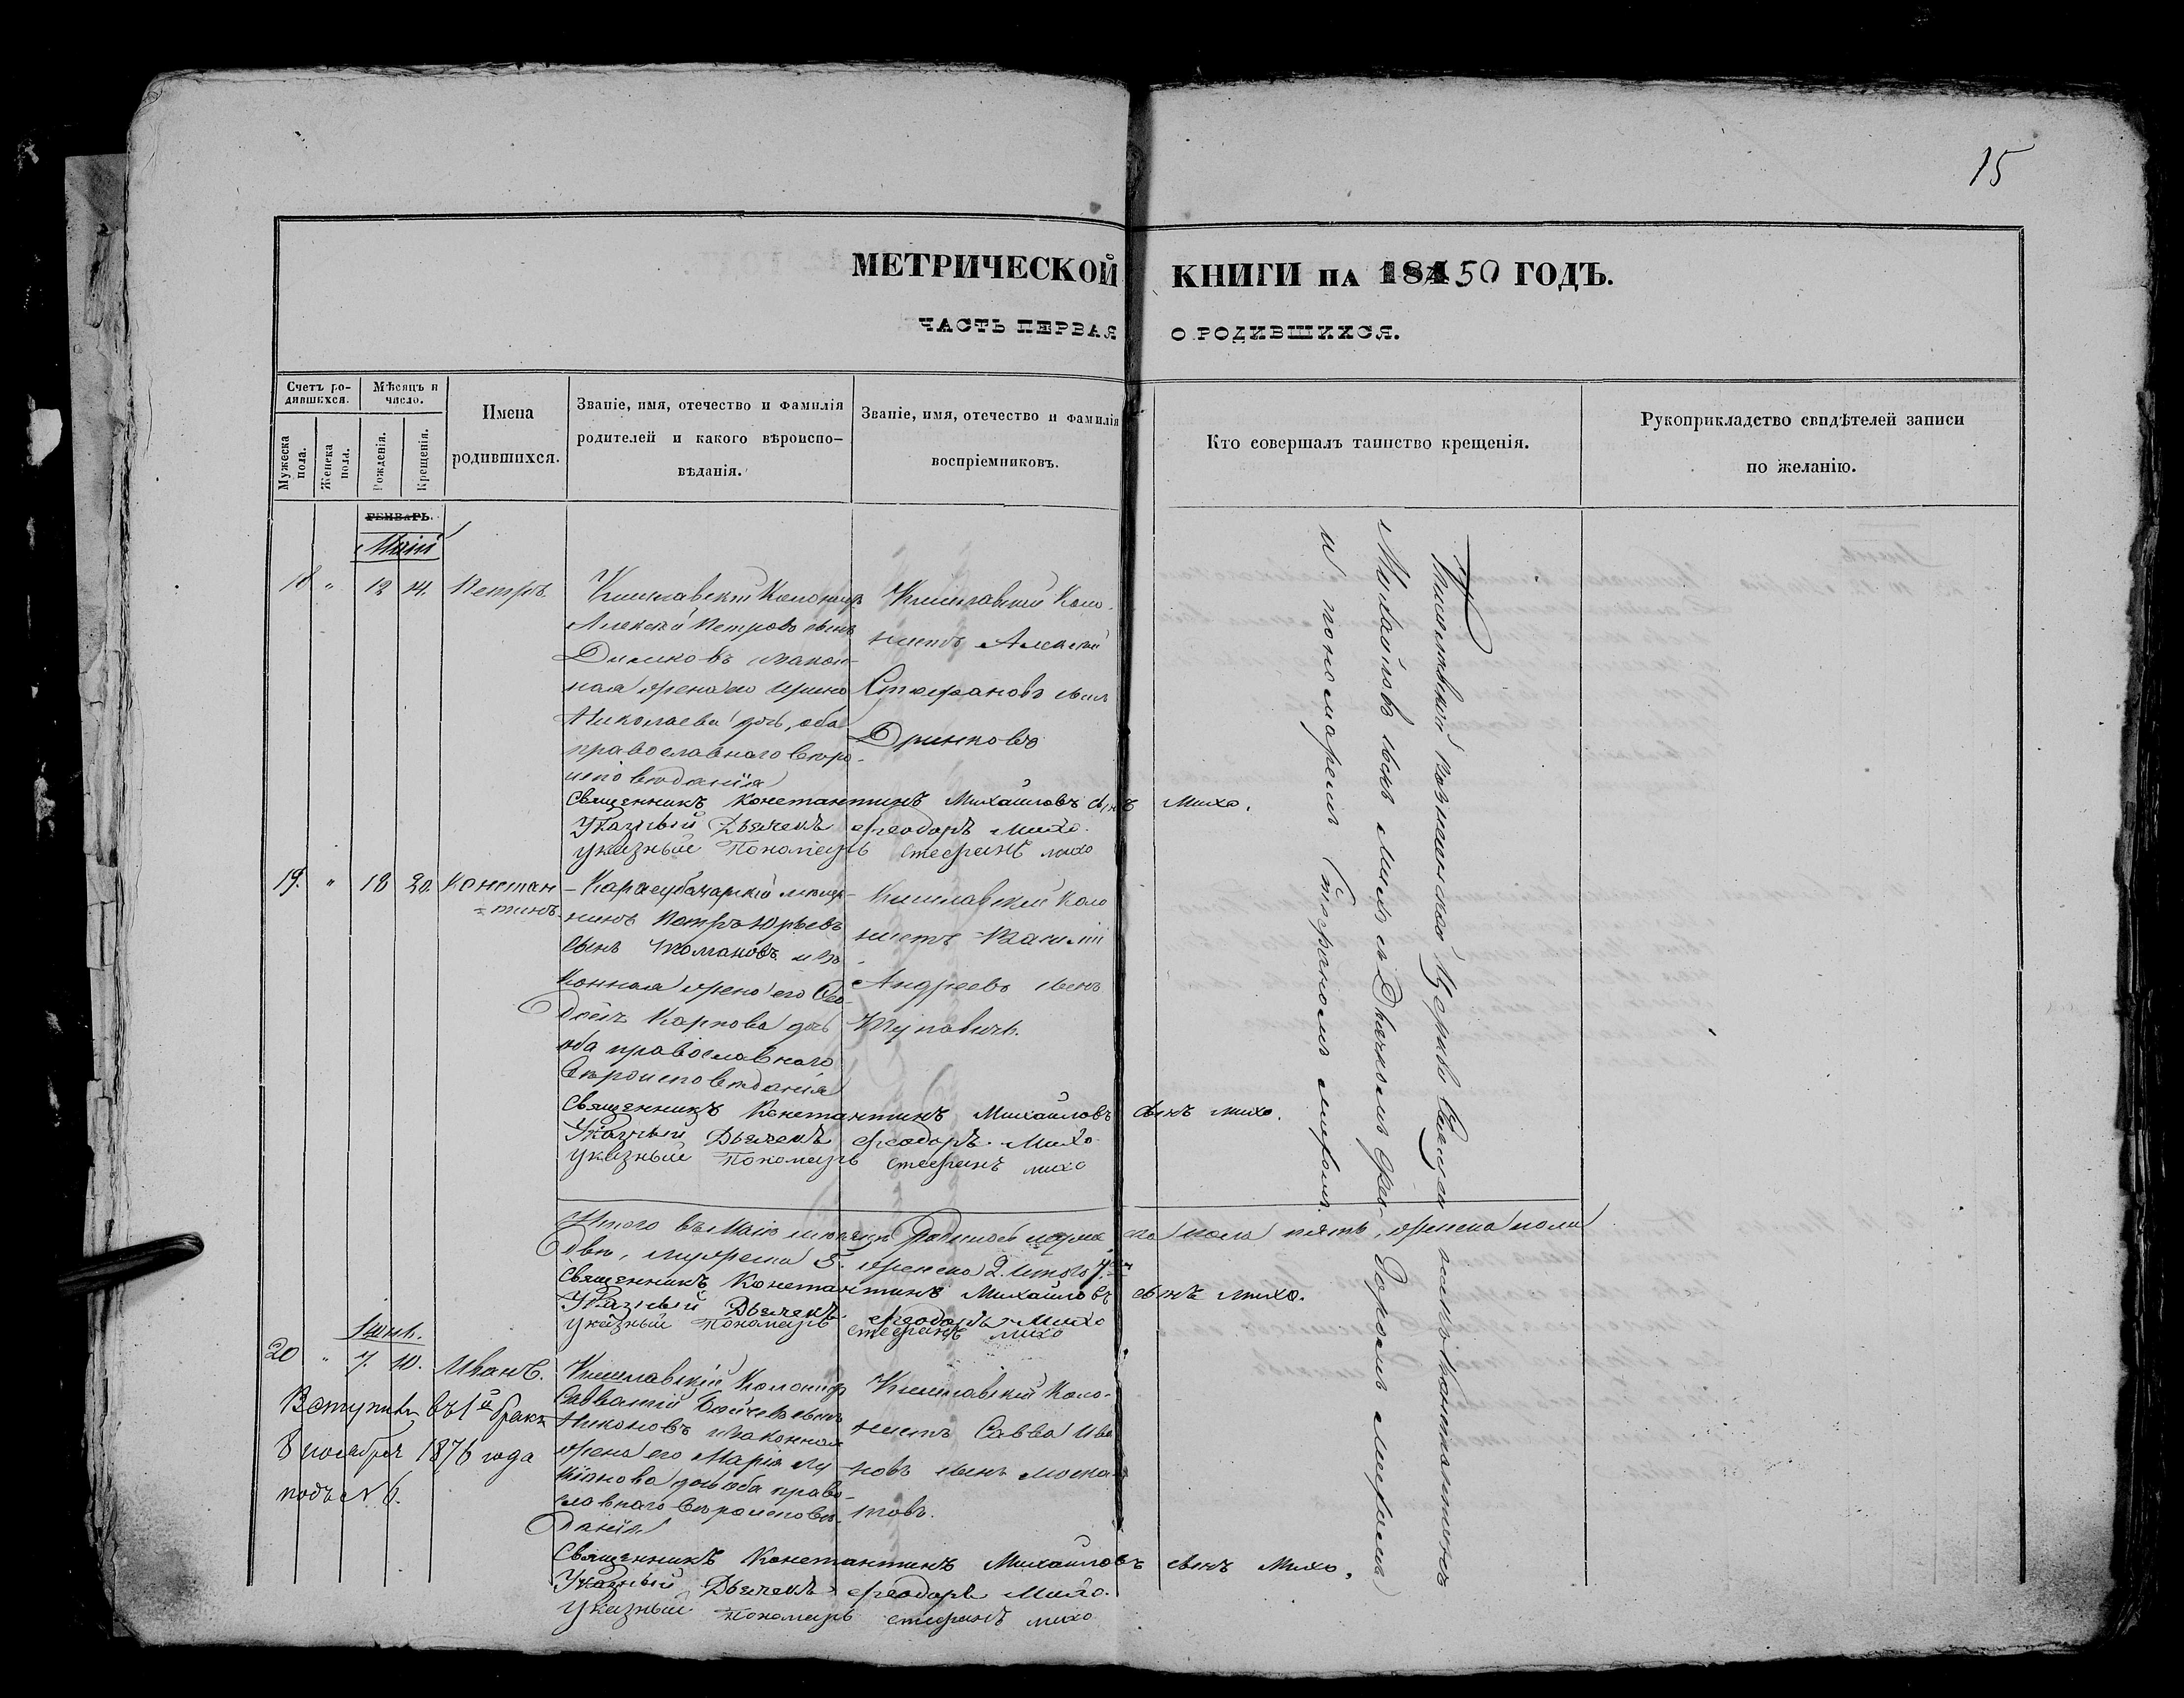 15
МЕТРИЧЕСКОЙ КНИГИ на 1850 ГОДЪ.
ЧАСТЬ ПЕРВАЯ О РОДИВШИХСЯ.
Счетъ родившихся.
Мужеска пола.
Женска пола.
Мѣсяцъ и число.
Рожденія.
Крещенія.
Имена родившихся.
Званіе, имя, отечество и фамилія
родителей и какого вѣроиспо-
вѣданія.
Званіе, имя, отечество и фамилія
воспріемниковъ.
Кто совершалъ таинство крещенія.
Рукоприкладство свидѣтелей записи
по желанію.
ГЕНВАРЬ.
Маій
18 " 12 14. Петръ
Кишлавскій Колонистъ
Алексій Петровъ сынъ
Димковъ и закон-
ная жена его Ирина
Николаева дочь, оба
православнаго веро-
исповеданія
Кишлавскій Коло-
нистъ Алексій
Стефановъ сынъ
Дринковъ
Священникъ Константинъ Михайловъ сынъ Михо.
Указный Дьячекъ Феодоръ Михо.
указный Пономарь Стефанъ михо
19. " 18 20. Констан
=тинъ
Карасубазарскій мещa-
нинъ Петръ Юрьевъ
сынъ Томановъ и за-
конная жена его Фео-
досія Карпова дочь
оба православнаго
вѣроисповѣданія
Кишлавскій Коло
нистъ Василій
Андреевъ сынъ
Священникъ Константинъ Михайловъ сынъ михо.
Указный Дьячекъ Феодоръ Михо
указный Пономарь Стефанъ михо
Итого въ Маіе месяце Родилось мужеска пола пять, женска пола
две, мужеска 5. женска 2. Итого 7.
Священникъ Константинъ Михайловъ сынъ михо.
Указный Дьячекъ Феодоръ Михо
указный Пономарь Стефанъ михо
Іюнь.
20 " 7. 10. Иванъ.
Вступилъ въ 1й бракъ
8 ноября 1876 года
подъ № 6.
Кишлавскій Колонистъ
Савватій Бойчевъ сынъ
Николовъ и законная
жена его Марія Лу
кіянова дочь оба право-
славнаго вѣроисповѣ-
данія
Кишлавскій Коло-
нистъ Савва Ива
новъ сынъ
Священникъ Константинъ Михайловъ сынъ Михо.
Указный Дьячекъ Феодоръ Михо.
указный Пономарь Стефанъ михо
Кишлавской Церкви Священникъ Константинъ
Михайловъ сынъ Михо съ Дьячкомъ Фео-
доромъ Михомъ
и пономаремъ Стефаномъ Михомъ.